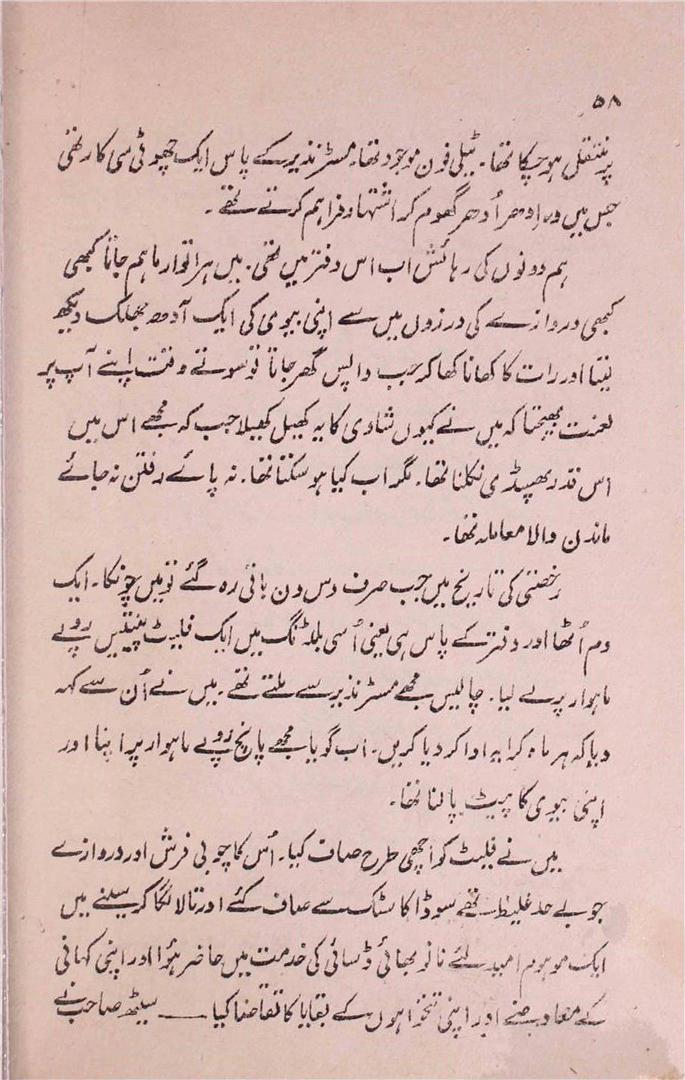 ۵۸
پر منتقل ہو چکا تھا۔ ٹیلی فون موجود تھا۔ مسٹر نذیر کے پاس ایک چھوٹی سی کار تھی
جس میں وہ اِدھر اُدھر گھوم کر اشتہار فراہم کرتے تھے۔
ہم دونوں کی رہائش اب اس دفتر میں تھی۔ میں ہر اتوار ماہم جاتا کبھی
کبھی دروازے کی درزوں میں سے اپنی بیوی کی ایک آدھ جھلک دیکھ
لیتا اور رات کا کھانا کھا کر جب واپس گھر جاتا تو سوتے وقت اپنے آپ پر
لعنت بھیجتا کہ میں نے کیوں شادی کا یہ کھیل کھیلا جب کہ مجھے اس میں
اس قدر پھسڈی نکلنا تھا۔ مگر اب کیا ہو سکتا تھا۔ نہ پائے رفتن نہ جائے
ماندن والا معاملہ تھا۔
رخصتی کی تاریخ میں جب صرف دس دن باقی رہ گئے تو میں چونکا۔ ایک
دم اُٹھا اور دفتر کے پاس ہی یعنی اُسی بلڈنگ میں ایک فلیٹ پینتیس روپے
ماہوار پر لے لیا۔ چالیس مجھے مسٹر نذیر سے ملتے تھے۔ میں نے اُن سے کہہ
دیا کہ ہر ماہ کرایہ ادا کر دیا کریں۔ اب گویا مجھے پانچ روپے ماہوار پر اپنا اور
اپنی بیوی کا پیٹ پالنا تھا۔
میں نے فلیٹ کو اچھی طرح صاف کیا۔ اُس کا چوبی فرش اور دروازے
جو بے حد غلیظ تھے سوڈا کاسٹک سے صاف کئے اور تالا لگا کر سینے میں
ایک موہوم امید لئے نانو بھائی ڈسائی کی خدمت میں حاضر ہوا اور اپنی کہانی
کے معاوضے اور اپنی تنخواہوں کے بقایا کا تقاضا کیا —— سیٹھ صاحب نے